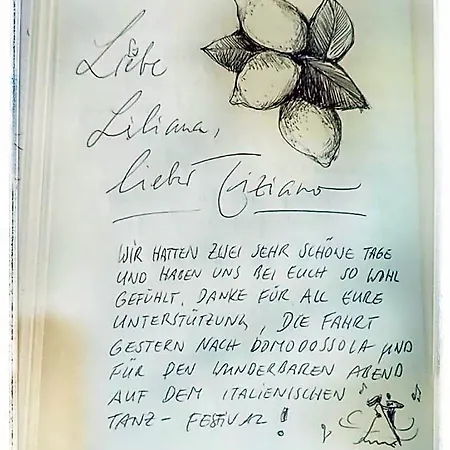 Liebe
Liliana,
lieber Tiziano
WIR HATTEN ZWEI SEHR SCHÖNE TAGE
UND HABEN UNS BEI EUCH SO WOHL
GEFÜHLT. DANKE FÜR ALL EURE
UNTERSTÜTZUNG, DIE FAHRT
GESTERN NACH DOMODOSSOLA UND
FÜR DEN WUNDERBAREN ABEND
AUF DEM ITALIENISCHEN
TANZ-FESTIVAL!